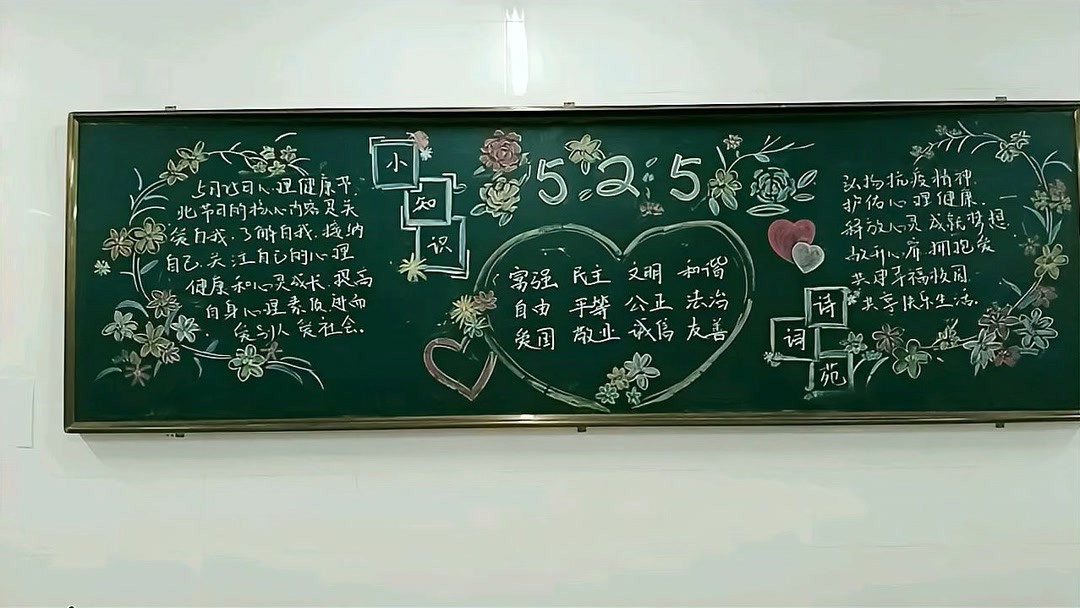 5月25日心理健康节.
此节日的核心内容是关
爱自我.了解自我.接纳
自己.关注自己的心理
健康和心灵成长.提高
自身心理素质.进而
爱别人 爱社会.
小
知
识
5.25
富强 民主 文明 和谐
自由 平等 公正 法治
爱国 敬业 诚信 友善
弘扬抗疫精神.
护佑心理健康.
释放心灵成就梦想.
敞开心扉拥抱爱
共建幸福校园
共享快乐生活.
诗
词
苑